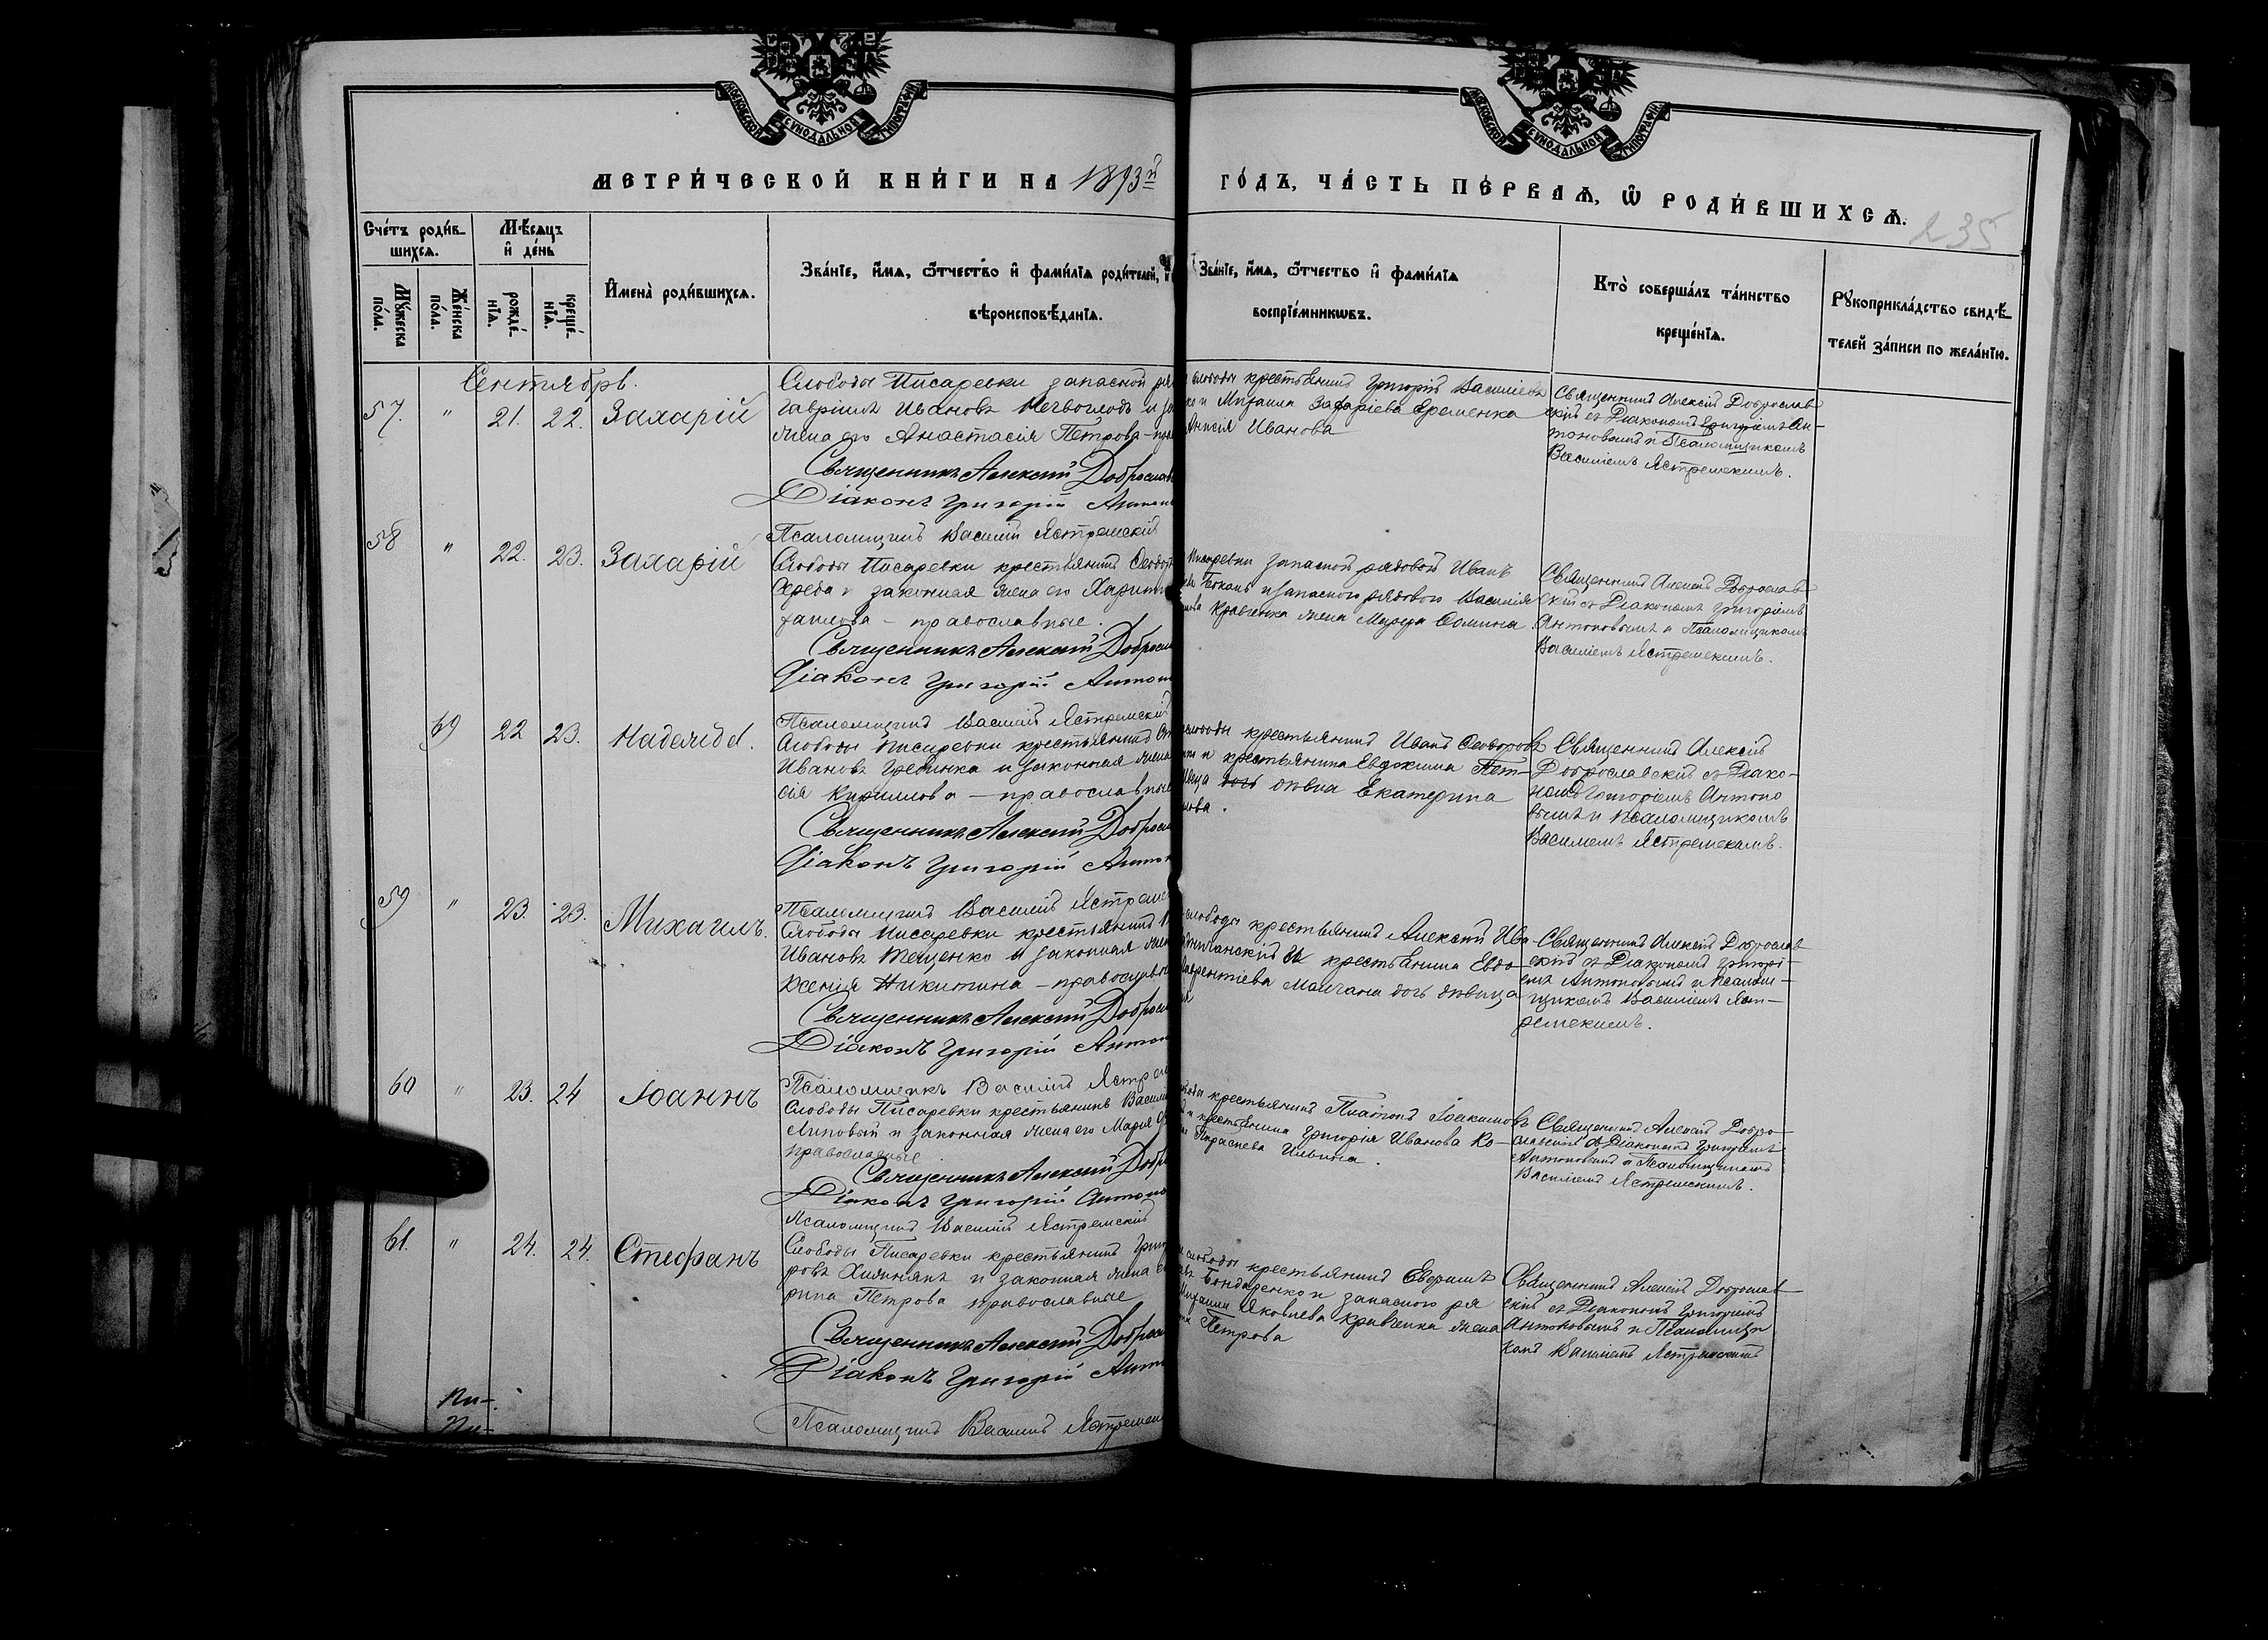 МОСКОВСКОЙ СУНОДАЛЬНОЙ ТИПОГРАФІИ
МОСКОВСКОЙ СУНОДАЛЬНОЙ ТИПОГРАФІИ
МЕТРИ́ЧЕСКОЙ КНИ́ГИ НА 1893й
ГО́ДЪ, ЧА́СТЬ ПЕ́РВАѦ, Ѽ РОДИ́ВШИХСѦ.
235
Сче́тъ роди́в-
шихсѧ.
Мѣ́сѧцъ
и҆ де́нь
Мꙋ́жеска
по́ла.
Же́нска
по́ла.
рожде́-
нїѧ.
креще́-
нїѧ.
И҆мена̀ роди́вшихсѧ.
Зва́нїе, и҆́мѧ, ѻ҆́тчество и҆ фами́лїѧ роди́телей,
вѣроисповѣ́данїѧ.
Зва́нїе, и҆́мѧ, ѻ҆́тчество и҆ фами́лїѧ
воспрїе́мникѡвъ.
Кто̀ соверша́лъ та́инство
креще́нїѧ.
Рꙋкоприкла́дство свидѣ́-
телей за́писи по жела́нїю.
Сентябрь.
57. " 21. 22. Захарій
Слободы Писаревки запасной ря
Гавріилъ Ивановъ и за
жена его Анастасія Петрова - пра
Священникъ Алексій Доброслав
Діаконъ Григорій Антон
Псаломщикъ Василій Ястремскій
слободы крестьянинъ Григорій Василіевъ
и Михаила Захаріева Еременка
Анисія Иванова
Священникъ Алексій Доброслав-
скій съ Діакономъ Григоріемъ Ан-
тоновымъ и Псаломщикомъ
Василіемъ Ястремскимъ.
58 " 22. 23. Захарій
Слободы Писаревки крестьянинъ Ѳеодор
Середа и законная жена его Харити
фаилова - православные.
Священникъ Алексій Добросла
Діаконъ Григорій Антон
Псаломщикъ Василій Ястремскій
Писаревки запасной рядовой Иванъ
Боканъ и запасного рядового Василія
Кравченка жена Марфа Ѳомина
Священникъ Алексій Доброслав-
скій съ Діакономъ Григоріемъ
Антоновымъ и Псаломщикомъ
Василіемъ Ястремскимъ.
69 22 23. Надежда.
Слободы Писаревки крестьянинъ
Ивановъ Гребинка и законная жена
сія Кириллова - православные
Священникъ Алексій Добросл
Діаконъ Григорій Антон
Псаломщикъ Василій Ястремс
слободы крестьянинъ Иванъ Ѳеодоровъ
и крестьянина Евдокима Пет-
дочь дѣвица Екатерина
Священникъ Алексій
Доброславскій съ Діако-
номъ Григоріемъ Антоно
вымъ и Псаломщикомъ
Василіемъ Ястремскимъ.
59 " 23. 23. Михаилъ.
Слободы Писаревки крестьянинъ
Ивановъ Тещенко и законная жен
Ксенія Никитина - православн
Священникъ Алексій Добросл
Діаконъ Григорій Антон
Псаломщикъ Василій Ястрем
слободы крестьянинъ Алексій Ива-
и крестьянина Евдо-
Лаврентіева Малгана дочь дѣвица
Священникъ Алексій Доброслав-
скій съ Діакономъ Григорі-
емъ Антоновымъ и Псалом-
щикомъ Василіемъ Яст-
ремскимъ.
60 " 23. 24 Іоаннъ
Слободы Писаревки крестьянинъ Васил
Липовый и законная жена его Марія
православные
Священникъ Алексій Добр
Діаконъ Григорій Антоно
Псаломщикъ Василій Ястремскій
крестьянинъ Платонъ Іоакимовъ
и крестьянина Григорія Иванова Ко-
Параскева Ильина.
Священникъ Алексій Добро-
славскій съ Діакономъ Григоріемъ
Антоновымъ и Псаломщикомъ
Василіемъ Ястремскимъ.
61. " 24. 24. Стефанъ
Слободы Писаревки крестьянинъ Григ
ровъ Хижнякъ и законная жена е
рина Петрова православные
Священникъ Алексій Доброс
Діаконъ Григорій Анто
Псаломщикъ Василій Ястремск
слободы крестьянинъ Евфимъ
Бондаренко и запасного ря
Михаила Яковлева Кравченка жена
Петрова
Священникъ Алексій Доброслав-
скій съ Діакономъ Григоріемъ
Антоновымъ и Псаломщи
комъ Василіемъ Ястремскимъ